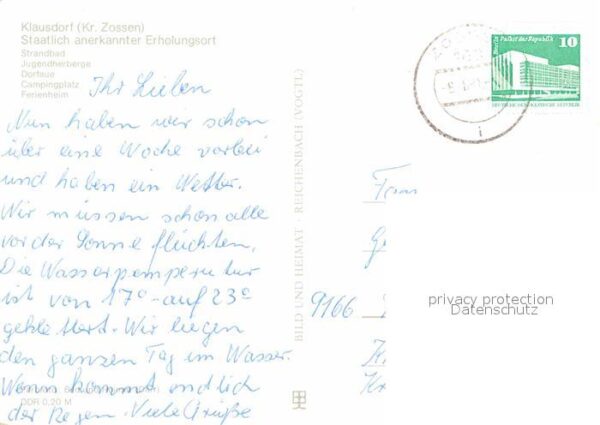 Klausdorf (Kr. Zossen)
Staatlich anerkannter Erholungsort
Strandbad
Jugendherberge
Dorfaue
Campingplatz
Ferienheim
Ihr Lieben
Nun haben wir schon
über eine Woche vorbei
und haben ein Wetter.
Wir müssen schon alle
vor der Sonne flüchten.
Die Wasserpemperutur
ist von 17° auf 23°
geklettert. Wir liegen
den ganzen Tag im Wasser.
Wann kommt endlich
der Regen. Viele Grüße
DDR 0,20 M
BILD UND HEIMAT · REICHENBACH (VOGTL)
Berlin, Palast der Republik
10
DEUTSCHE DEMOKRATISCHE REPUBLIK
Fam
9166
privacy protection
Datenschutz